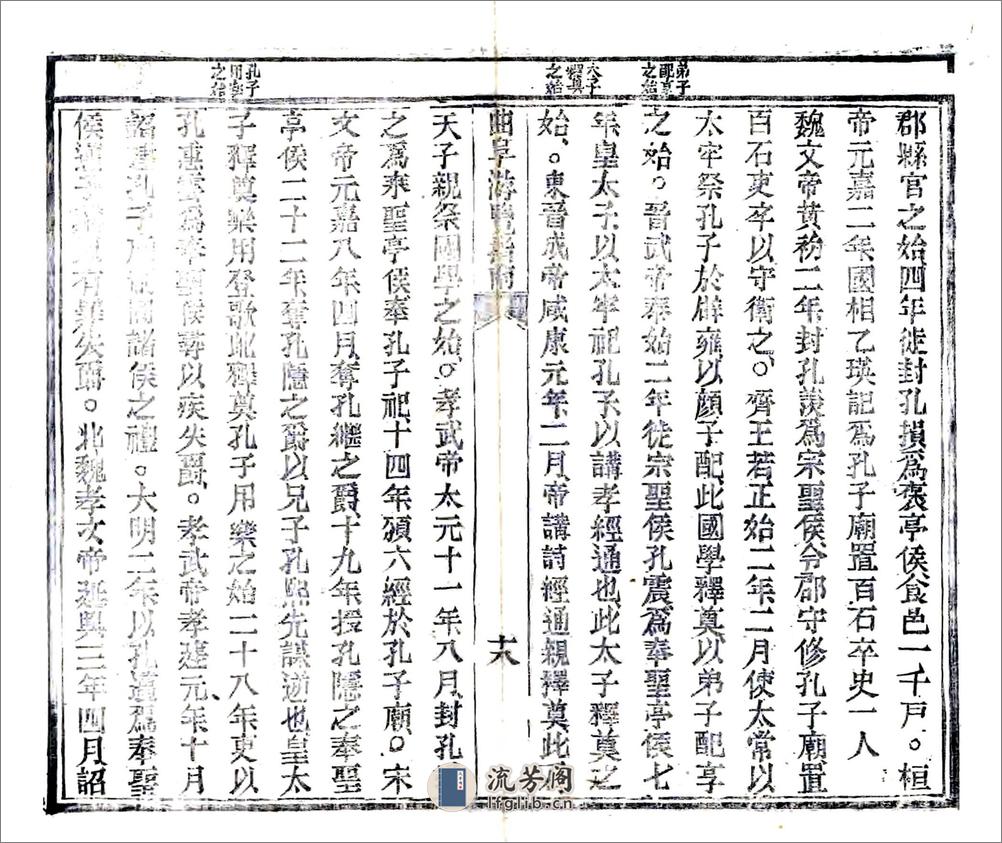 弟子
配享
之始
太子
釋奠
之始
孔子
用樂
之始
郡縣官之始四年徙封孔損爲褒亭侯食邑一千戸。桓
帝元嘉二年國相乙瑛記爲孔子廟置百石卒史一人
魏文帝黃初二年封孔羨爲宗聖侯令郡守修孔子廟置
百石吏卒以守衛之。齊王若正始二年二月使太常以
太牢祭孔子於辟雍以顔子配此國學釋奠以弟子配享
之始。晉武帝奉始二年徙宗聖侯孔震爲奉聖亭侯七
年皇太子以太牢祀孔子以講孝經通也此太子釋奠之
始。東晉成帝咸康元年二月帝講詩經通親釋奠此
曲阜游覽指南
十八
天子親祭國學之始。孝武帝太元十一年八月封孔
之爲奉聖亭侯奉孔子祀十四年頒六經於孔子廟。宋
文帝元嘉八年四月奪孔繼之爵十九年授孔隱之奉聖
亭侯二十二年奪孔隱之爵以兄子孔熙先謀逆也皇太
子釋奠樂用登歌此釋奠孔子用樂之始二十八年更以
孔惠雲爲奉聖侯尋以疾失爵。孝武帝孝建元年十月
詔建孔子廟制同諸侯之禮。大明二年以孔邁爲奉聖
侯邁卒子有罪失爵。北魏孝文帝延興三年四月詔
流芳阁
lfglib.cn